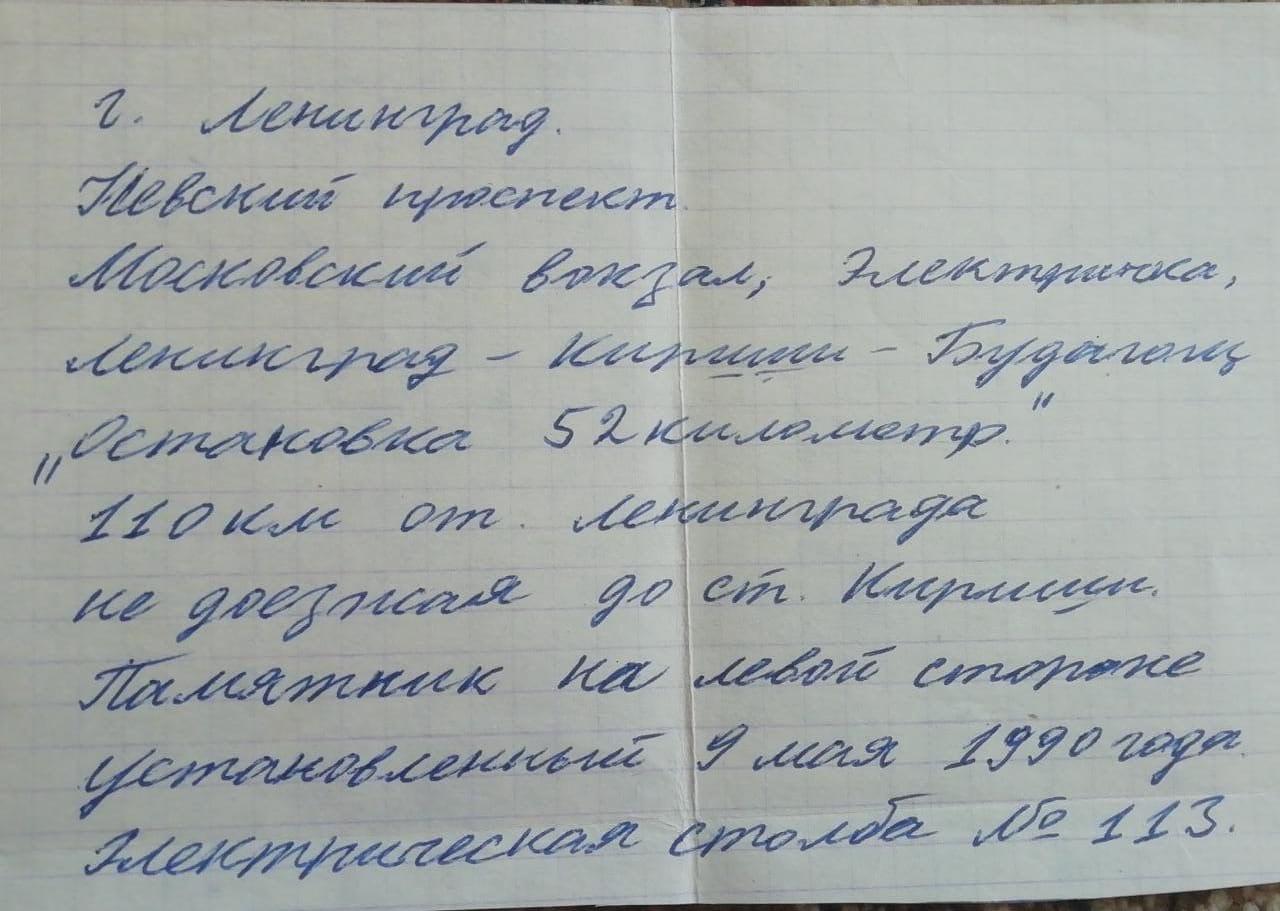 г. Ленинград.
Невский проспект.
Московский вокзал, Электричка,
Ленинград - Кириши - Будагощ
„Остановка 52 километр."
110 км от. Ленинграда
не доезжая до ст. Кириши.
Памятник на левой стороне
установленный 9 мая 1990 года.
Электрическая столба № 113.